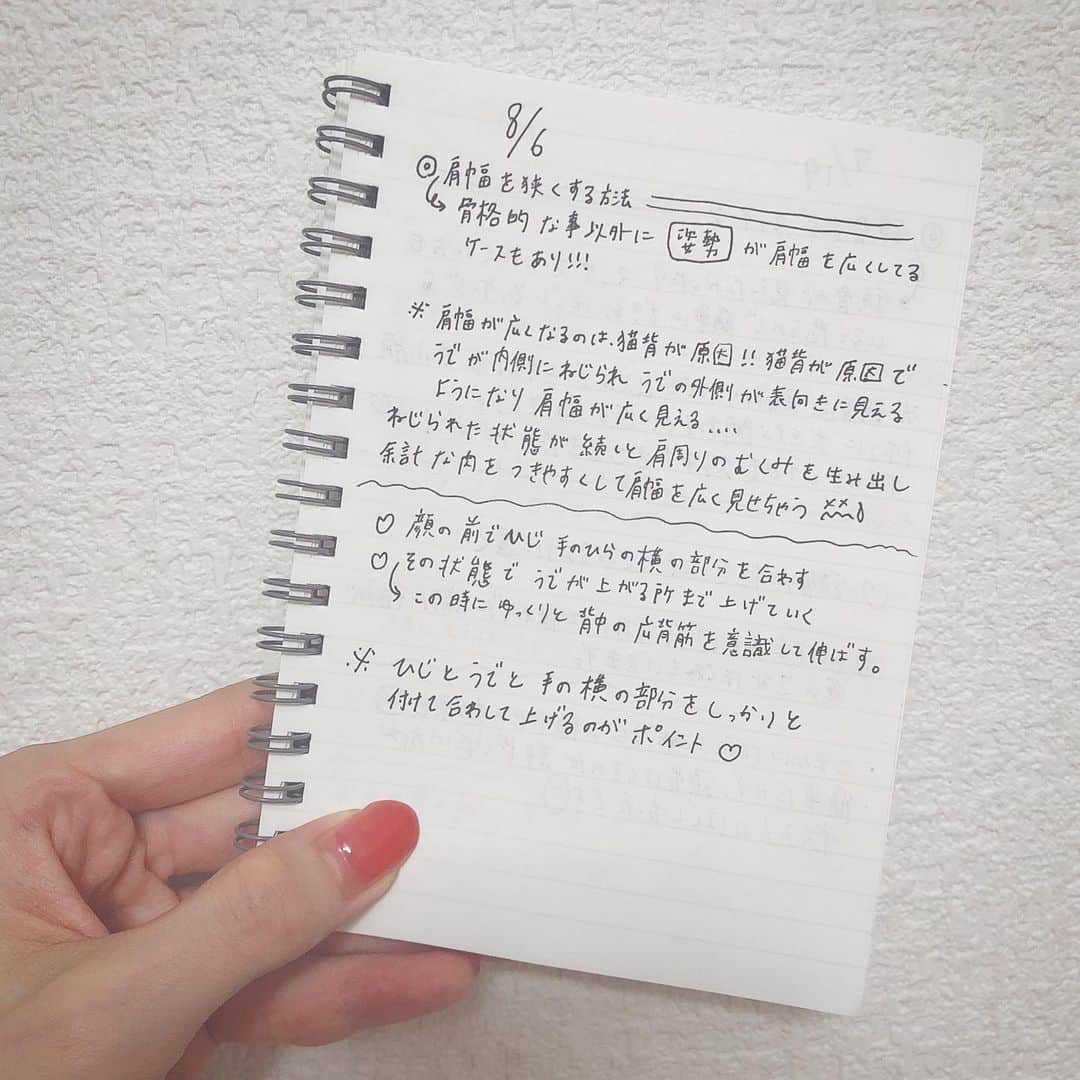 8/6
◎肩幅を狭くする方法
↳骨格的な事以外に 姿勢 が肩幅を広くしてる
ケースもあり!!!
※肩幅が広くなるのは、猫背が原因!! 猫背が原因で
うでが内側にねじられ うでの外側が表向きに見える
ようになり 肩幅が広く見える....
ねじられた状態が続くと肩周りのむくみを生み出し
余計な肉をつきやすくして肩幅を広く見せちゃう
♡ 顔の前でひじ 手のひらの横の部分を合わす
♡ その状態で うでが上がる所まで上げていく
↳この時にゆっくりと背中の広背筋を意識して伸ばす。
※ ひじとうでと 手の横の部分をしっかりと
付けて合わして上げるのがポイント♡
7/19